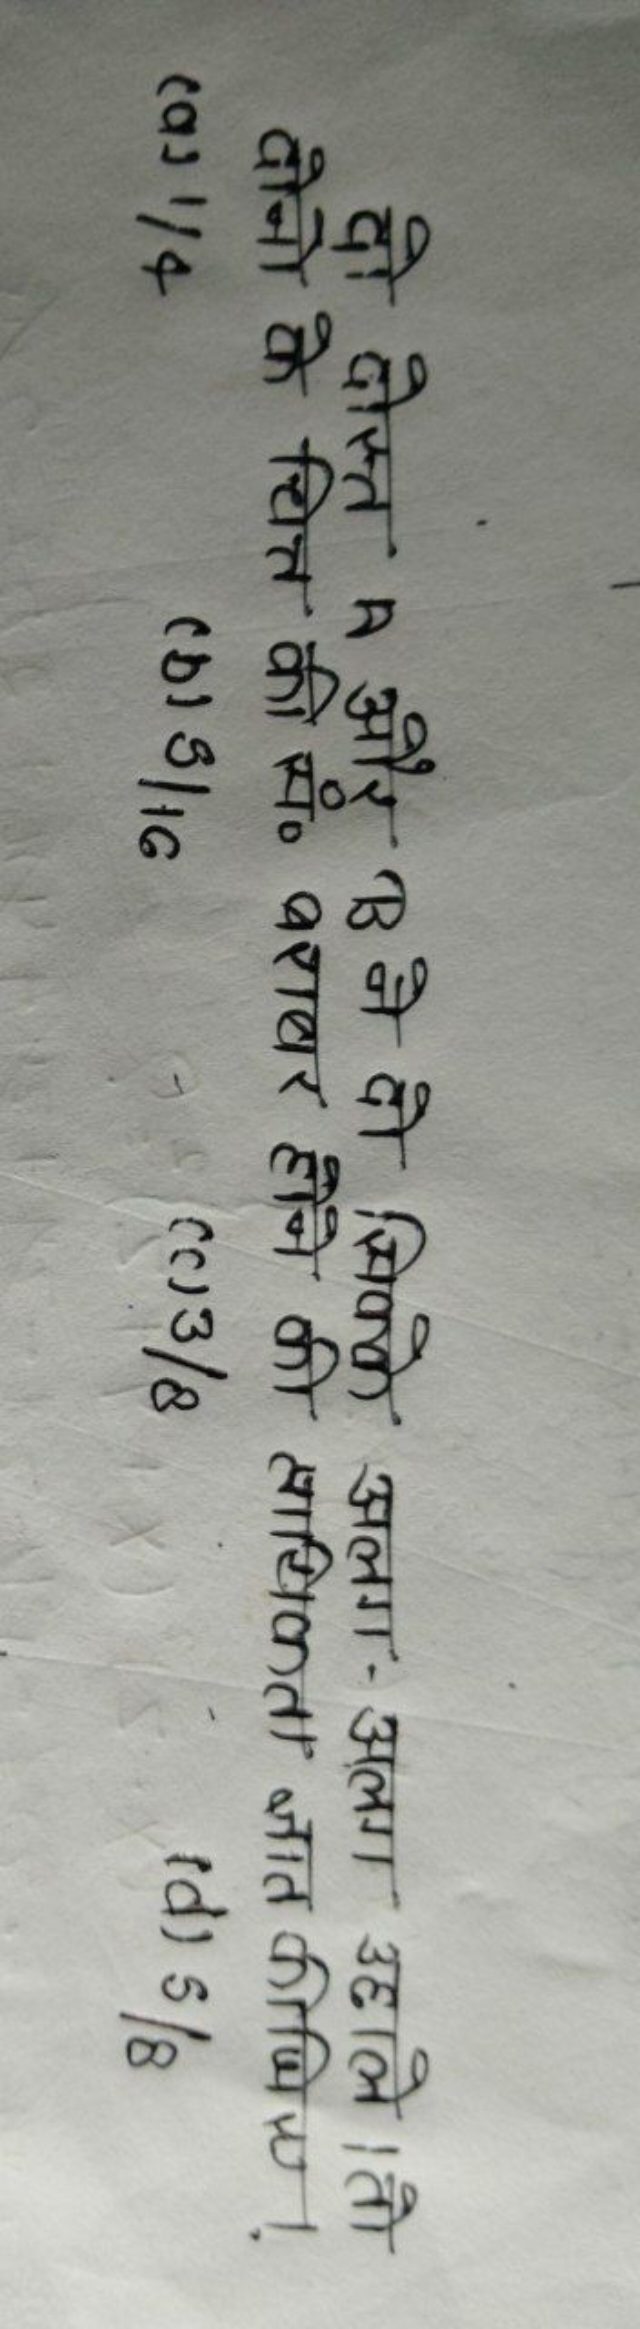 दो दोस्त A और B ने दो सिक्के अलग-अलग उछाले। तो
दोनो के चित्त की सं० बराबर होने की प्रायिकता ज्ञात कीजिए।
(a) 1/4 (b) 5/16 (c) 3/8 (d) 5/8